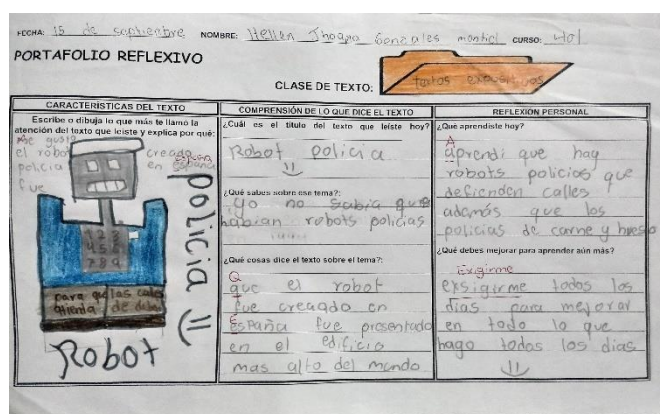 FECHA: 15 de septiembre NOMBRE: Hellen Jhoana Gonzales montiel CURSO: 401
PORTAFOLIO REFLEXIVO
CLASE DE TEXTO: textos expositivos
CARACTERÍSTICAS DEL TEXTO
Escribe o dibuja lo que más te llamó la
atención del texto que leíste y explica por qué:
Me gusto
el robot creado
policia en españa
fue
España
1 2 3
4 5 6
7 8 9
para que las calles
atienda de
Robot
policia
COMPRENSIÓN DE LO QUE DICE EL TEXTO
¿Cuál es el título del texto que leíste hoy?
Robot policia
¿Qué sabes sobre ese tema?:
yo no sabia que
habian robots policias
¿Qué cosas dice el texto sobre el tema?:
Q
que el robot
fue creagdo en
E
españa fue presentado
en el edificio
mas alto del mundo
REFLEXIÓN PERSONAL
¿Qué aprendiste hoy?
A
aprendi que hay
robots policios que
defienden calles
además que los
policias de carne y hueso
¿Qué debes mejorar para aprender aún más?
Exigirme
exsigirme todos los
dias para mejorar
en todo lo que
hago todos los dias